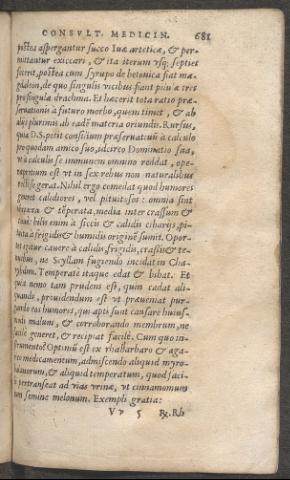 CONSVLT. MEDICIN. 681
postea aspergantur succo Iuæ arteticæ, & per-
mittantur exiccari, & ita iterum vsq; septies
ficeret, postea cum syrupo de betonica fiat mag-
daleon, de quo singulis vicibus fiant pilulæ tres
pro singula drachma. Et hæc erit tota ratio præ-
seruationis à futuro morbo, quem timet, & ab
alijs plurimis ab eadē materia oriundis. Rursus,
quia D.S. petit consilium præseruatiuū à calculo
pro quodam amico suo, idcirco Dominatio sua,
vt à calculo se immunem omnino reddat, ope-
repretium est vt in sex rebus non naturalibus
rectè se gerat. Nihil ergo comedat quod humores
generet calidiores, vel pituitosos: omnia sint
mixta & tēperata, media inter crassum &
bilis enim à siccis & calidis cibarijs, pi-
tuita à frigidis & humidis originē sumit. Opor-
tet igitur cauere à calidis, frigidis, crassis & te-
nuibus, ne Scyllam fugiendo incidat in Cha-
rybdim. Temperatè itaque edat & bibat. Et
quia nemo tam prudens est, quin cadat ali-
quando, prouidendum est vt præueniat pur-
gando eos humores, qui apti sunt causare huius-
modi malum, & corroborando membrum, ne
facilè generet, & recipiat facilè. Cum quo in-
strumento? Optimū est ex rhabarbaro & aga-
rico medicamentum, admiscendo aliquid myro-
balanorum, & aliquid temperatum, quod faci-
lè pertranseat ad vias vrinæ, vt cinnamomum
cum semine melonum. Exempli gratia:
Vv 5 ℞. Rh